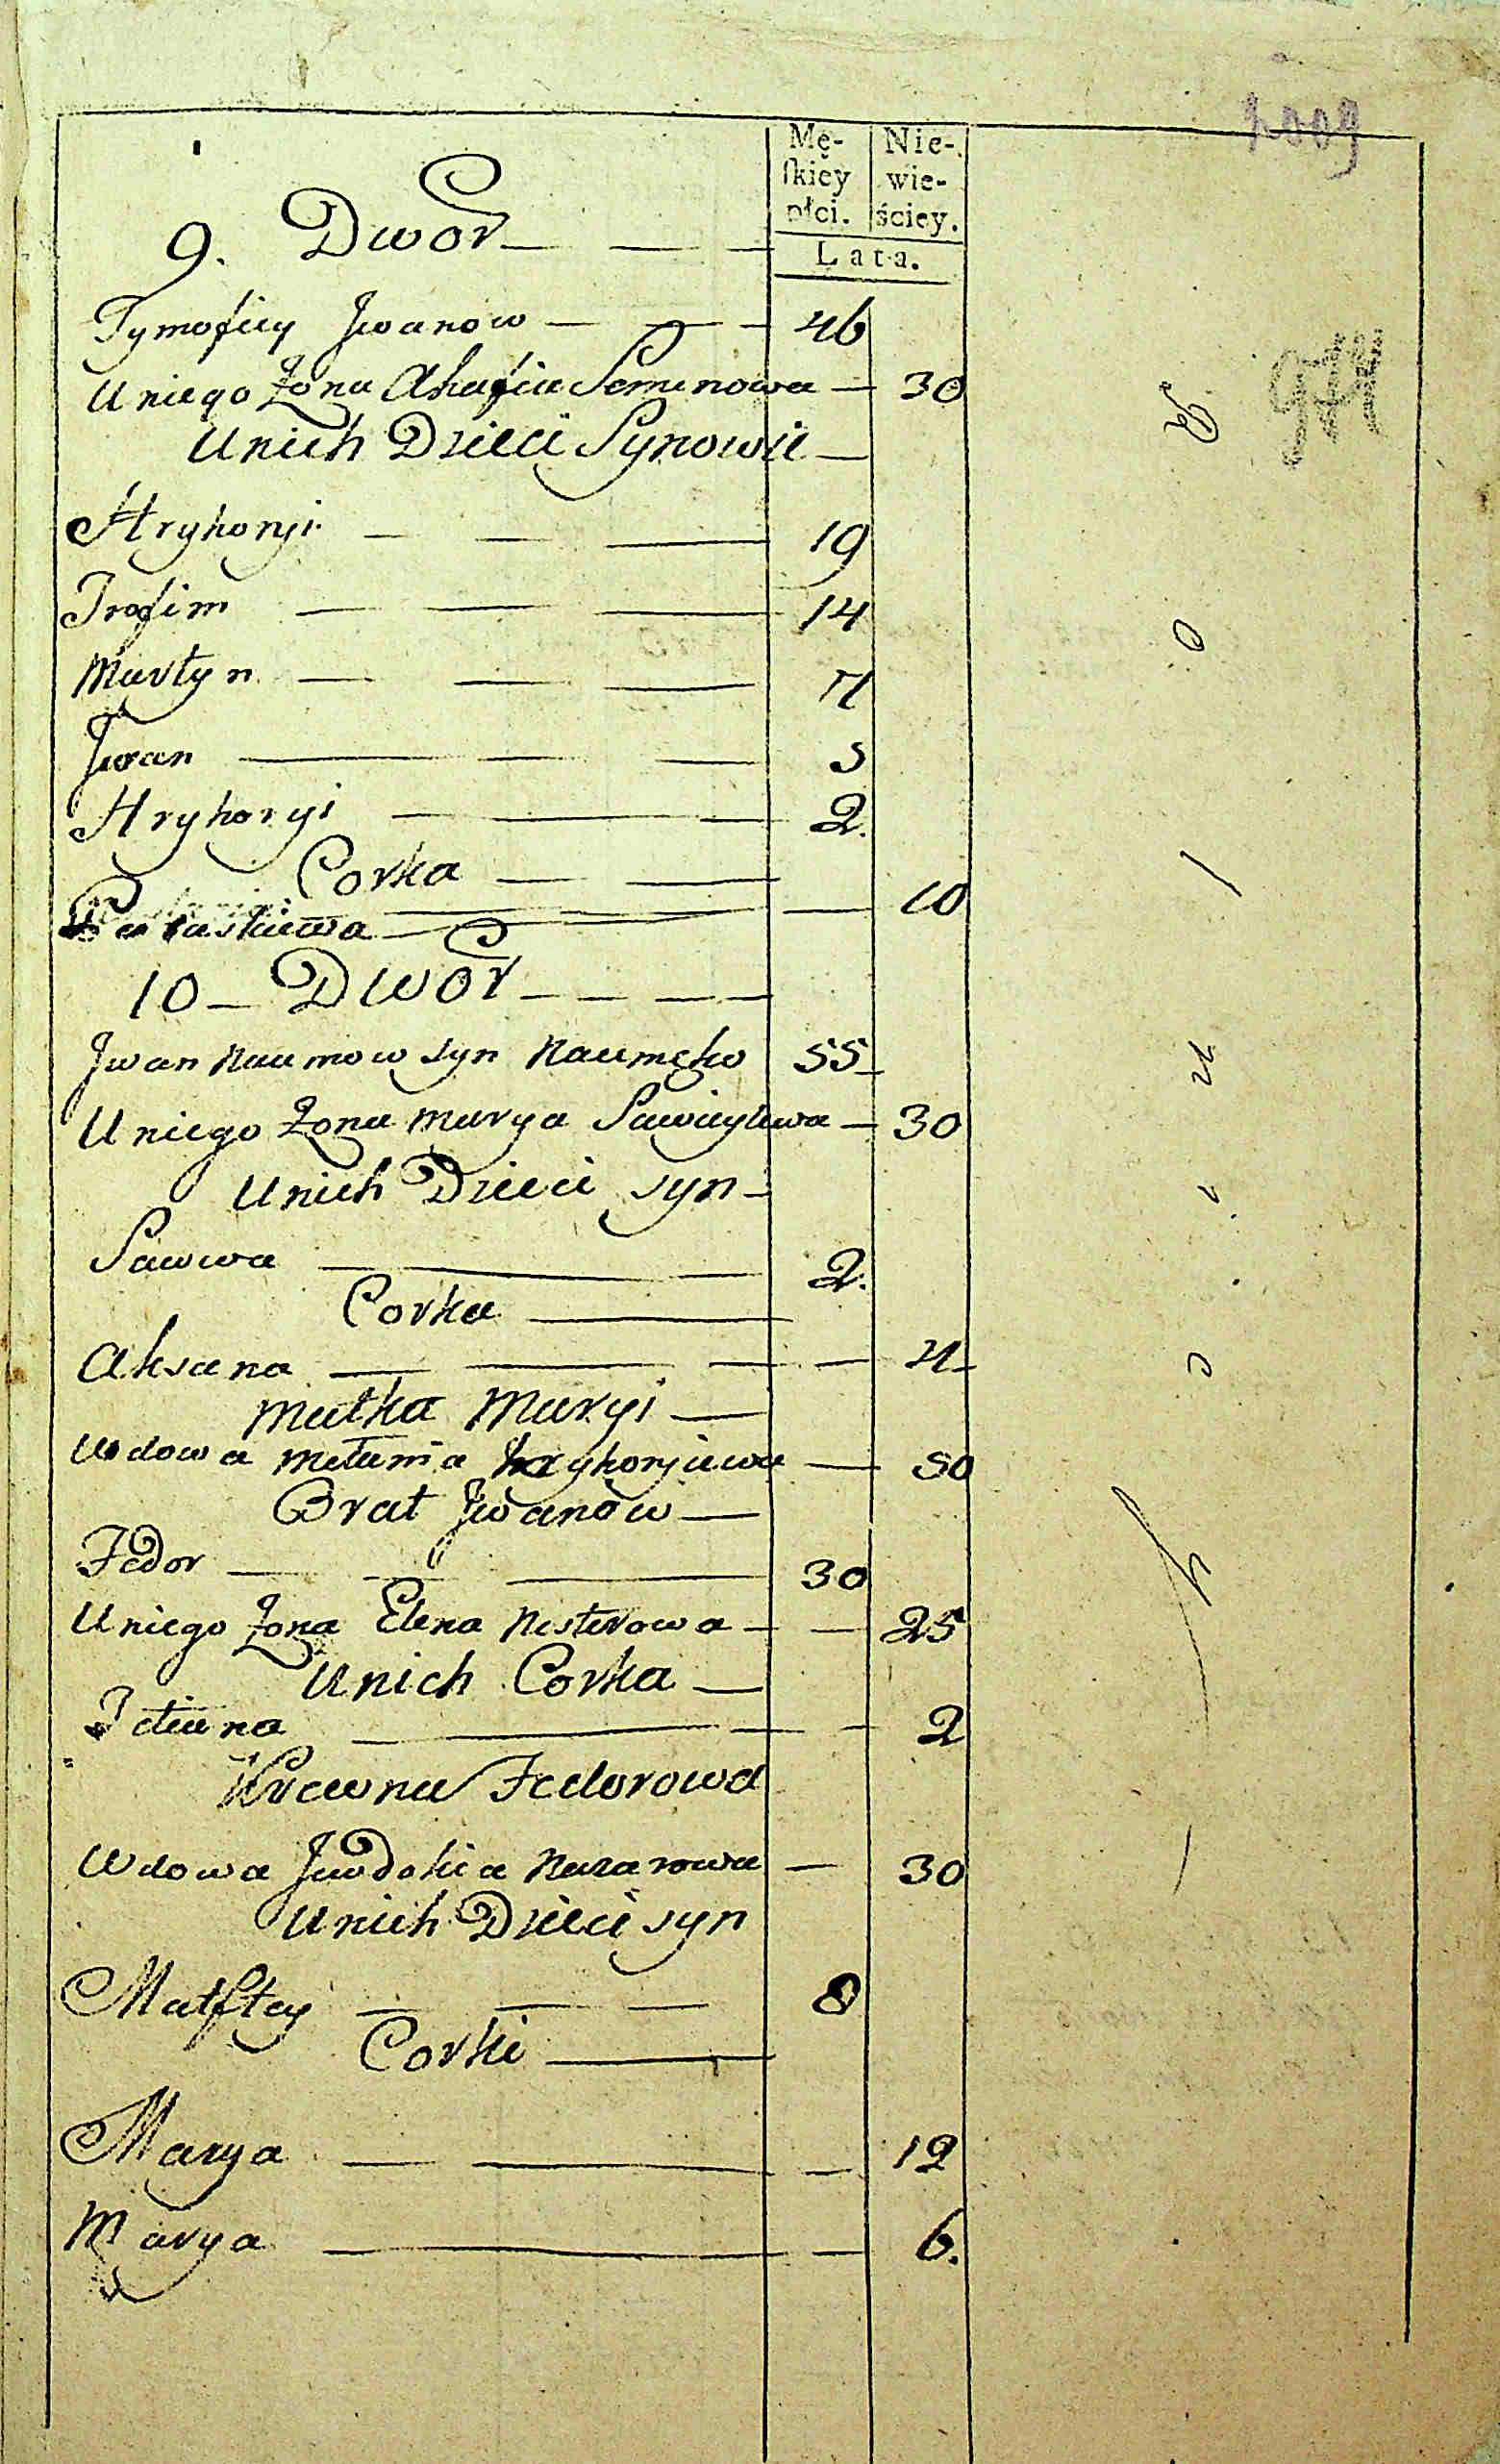 Mę- Nie-
skiey wie-
płci. ściey.
9. Dwor
Lata.
Tymofiey Jwanow 46
Uniego Żona Ahafia Semenowa 30
Unich Dzieci Synowie
Hryhoryi 19
Trofim 14
Martyn
Jwan 5
Hryhoryi 2.
Corka
Paraskiewa 10
10 Dwor
Jwan Naumow syn Naumęko 55
Uniego Żona Marya Sawieylewa 30
Unich Dzieci syn
Sawwa 2.
Corka
Aksana 4
Matka Maryi
Wdowa Melania Hryhoryiewa 50
Brat Jwanow
Fedor 30
Uniego Żona Elena Nesterowa 25
Unich Corka
Tetiana 2
Krewna Fedorowa
Wdowa Jewdokia Nazarowa 30
Unich Dzieci syn
Matftey 8
Corki
Marya 12
Marya 6.